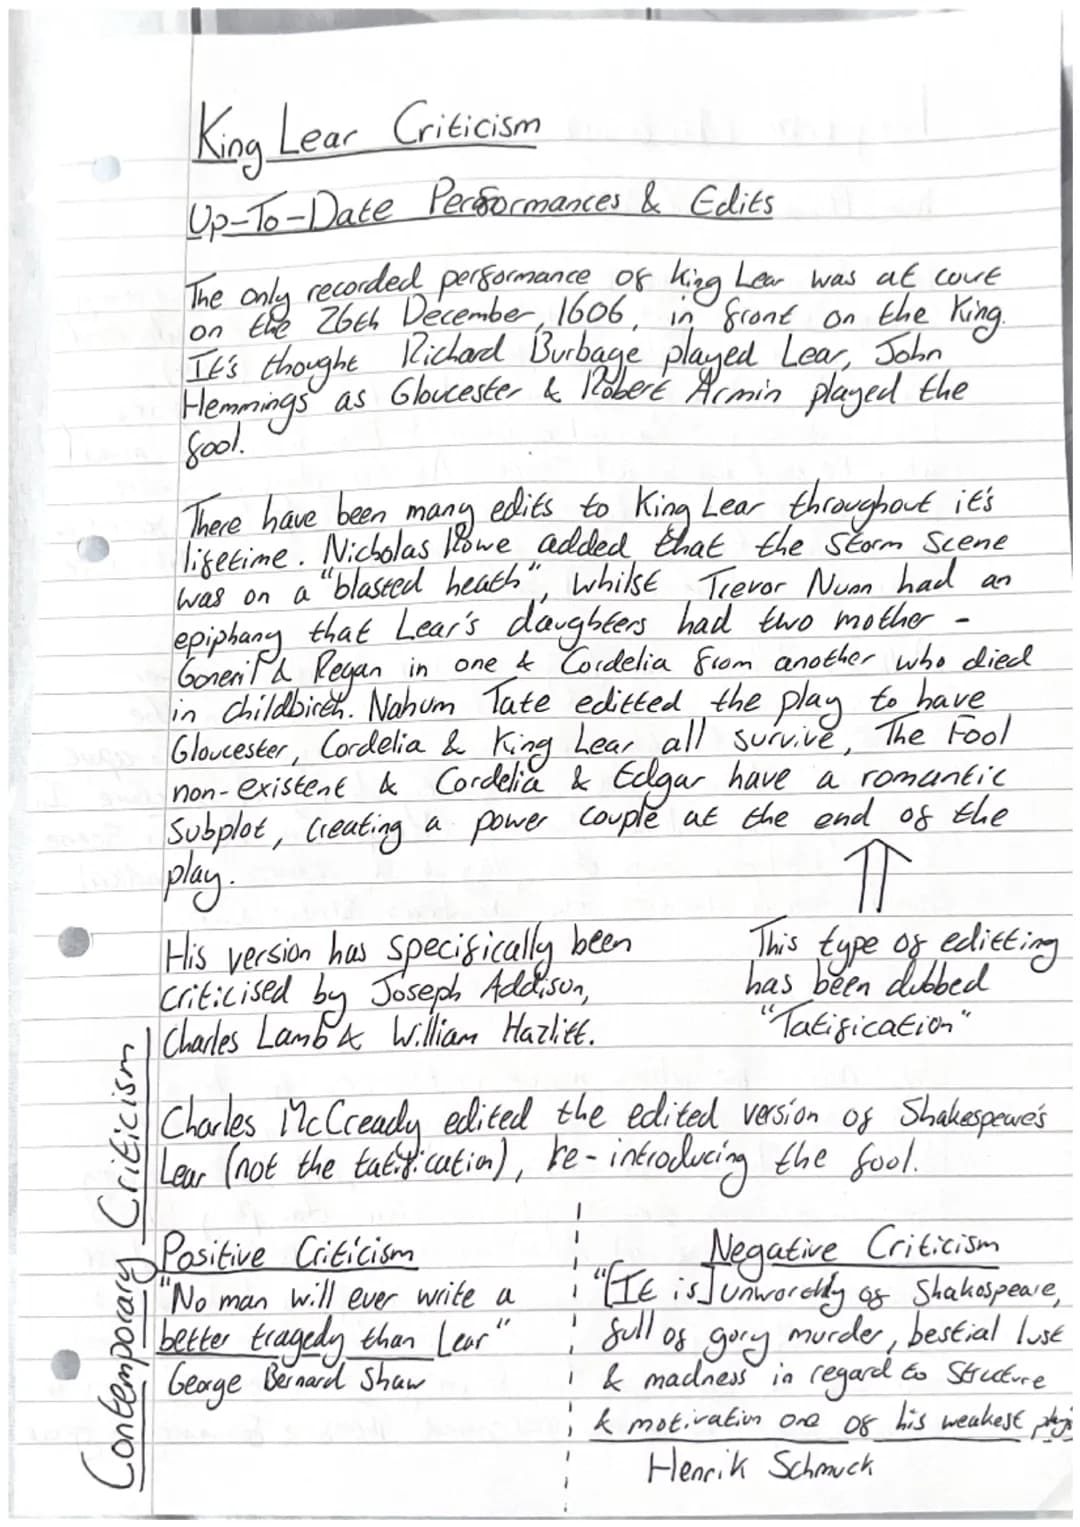 King Lear Criticism
Up-To-Date Performances & Edits
The only recorded performance of King Lear was at court
on the 26th December, 1606, in front on the King.
It's thought Richard Burbage played Lear, John
Hemmings as Gloucester & Robert Armin played the
fool.
There have been many edits to King Lear throughout it's
lifetime. Nicholas Rowe added that the Storm Scene
was on a "blasted heath", whilst Trevor Nunn had an
epiphany that Lear's daughters had two mother -
Goneril & Regan in one & Cordelia from another who died
in childbirth. Nahum Tate editted the play to have
Gloucester, Cordelia & King Lear all survive, The Fool
non-existent & Cordelia & Edgar have a romantic
Subplot, creating a power couple at the end of the
play.
His version has specifically been
criticised by Joseph Addison,
Charles Lamb & William Hazlitt.
This type of editting
has been dubbed
"Tatification"
Charles McCready edited the edited version of Shakespeare's
Lear (not the tatification), re-introducing the fool.
Contemporary Criticism
Positive Criticism
"No man will ever write a
better tragedy than Lear"
George Bernard Shaw
Negative Criticism
"[It is] unworthy of Shakespeare,
full of gory murder, bestial lust
& madness in regard to Structure
& motivation one of his weakest plays
Henrik Schmuck